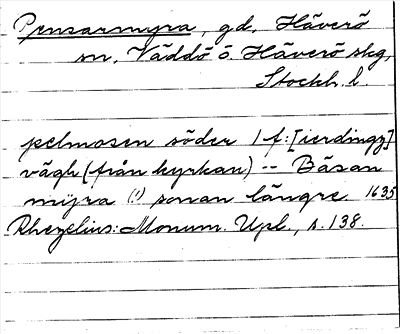 Pensarmyra, gd, Häverö
sn, Väddö o. Häverö skg,
Stockh. l.
pelmosen söder 1 f:[ierdingz]
vägh (från kyrkan) -- Båsan
myra (!) sonan längre. 1635
Rhezelius: Monum. Upl., s. 138.